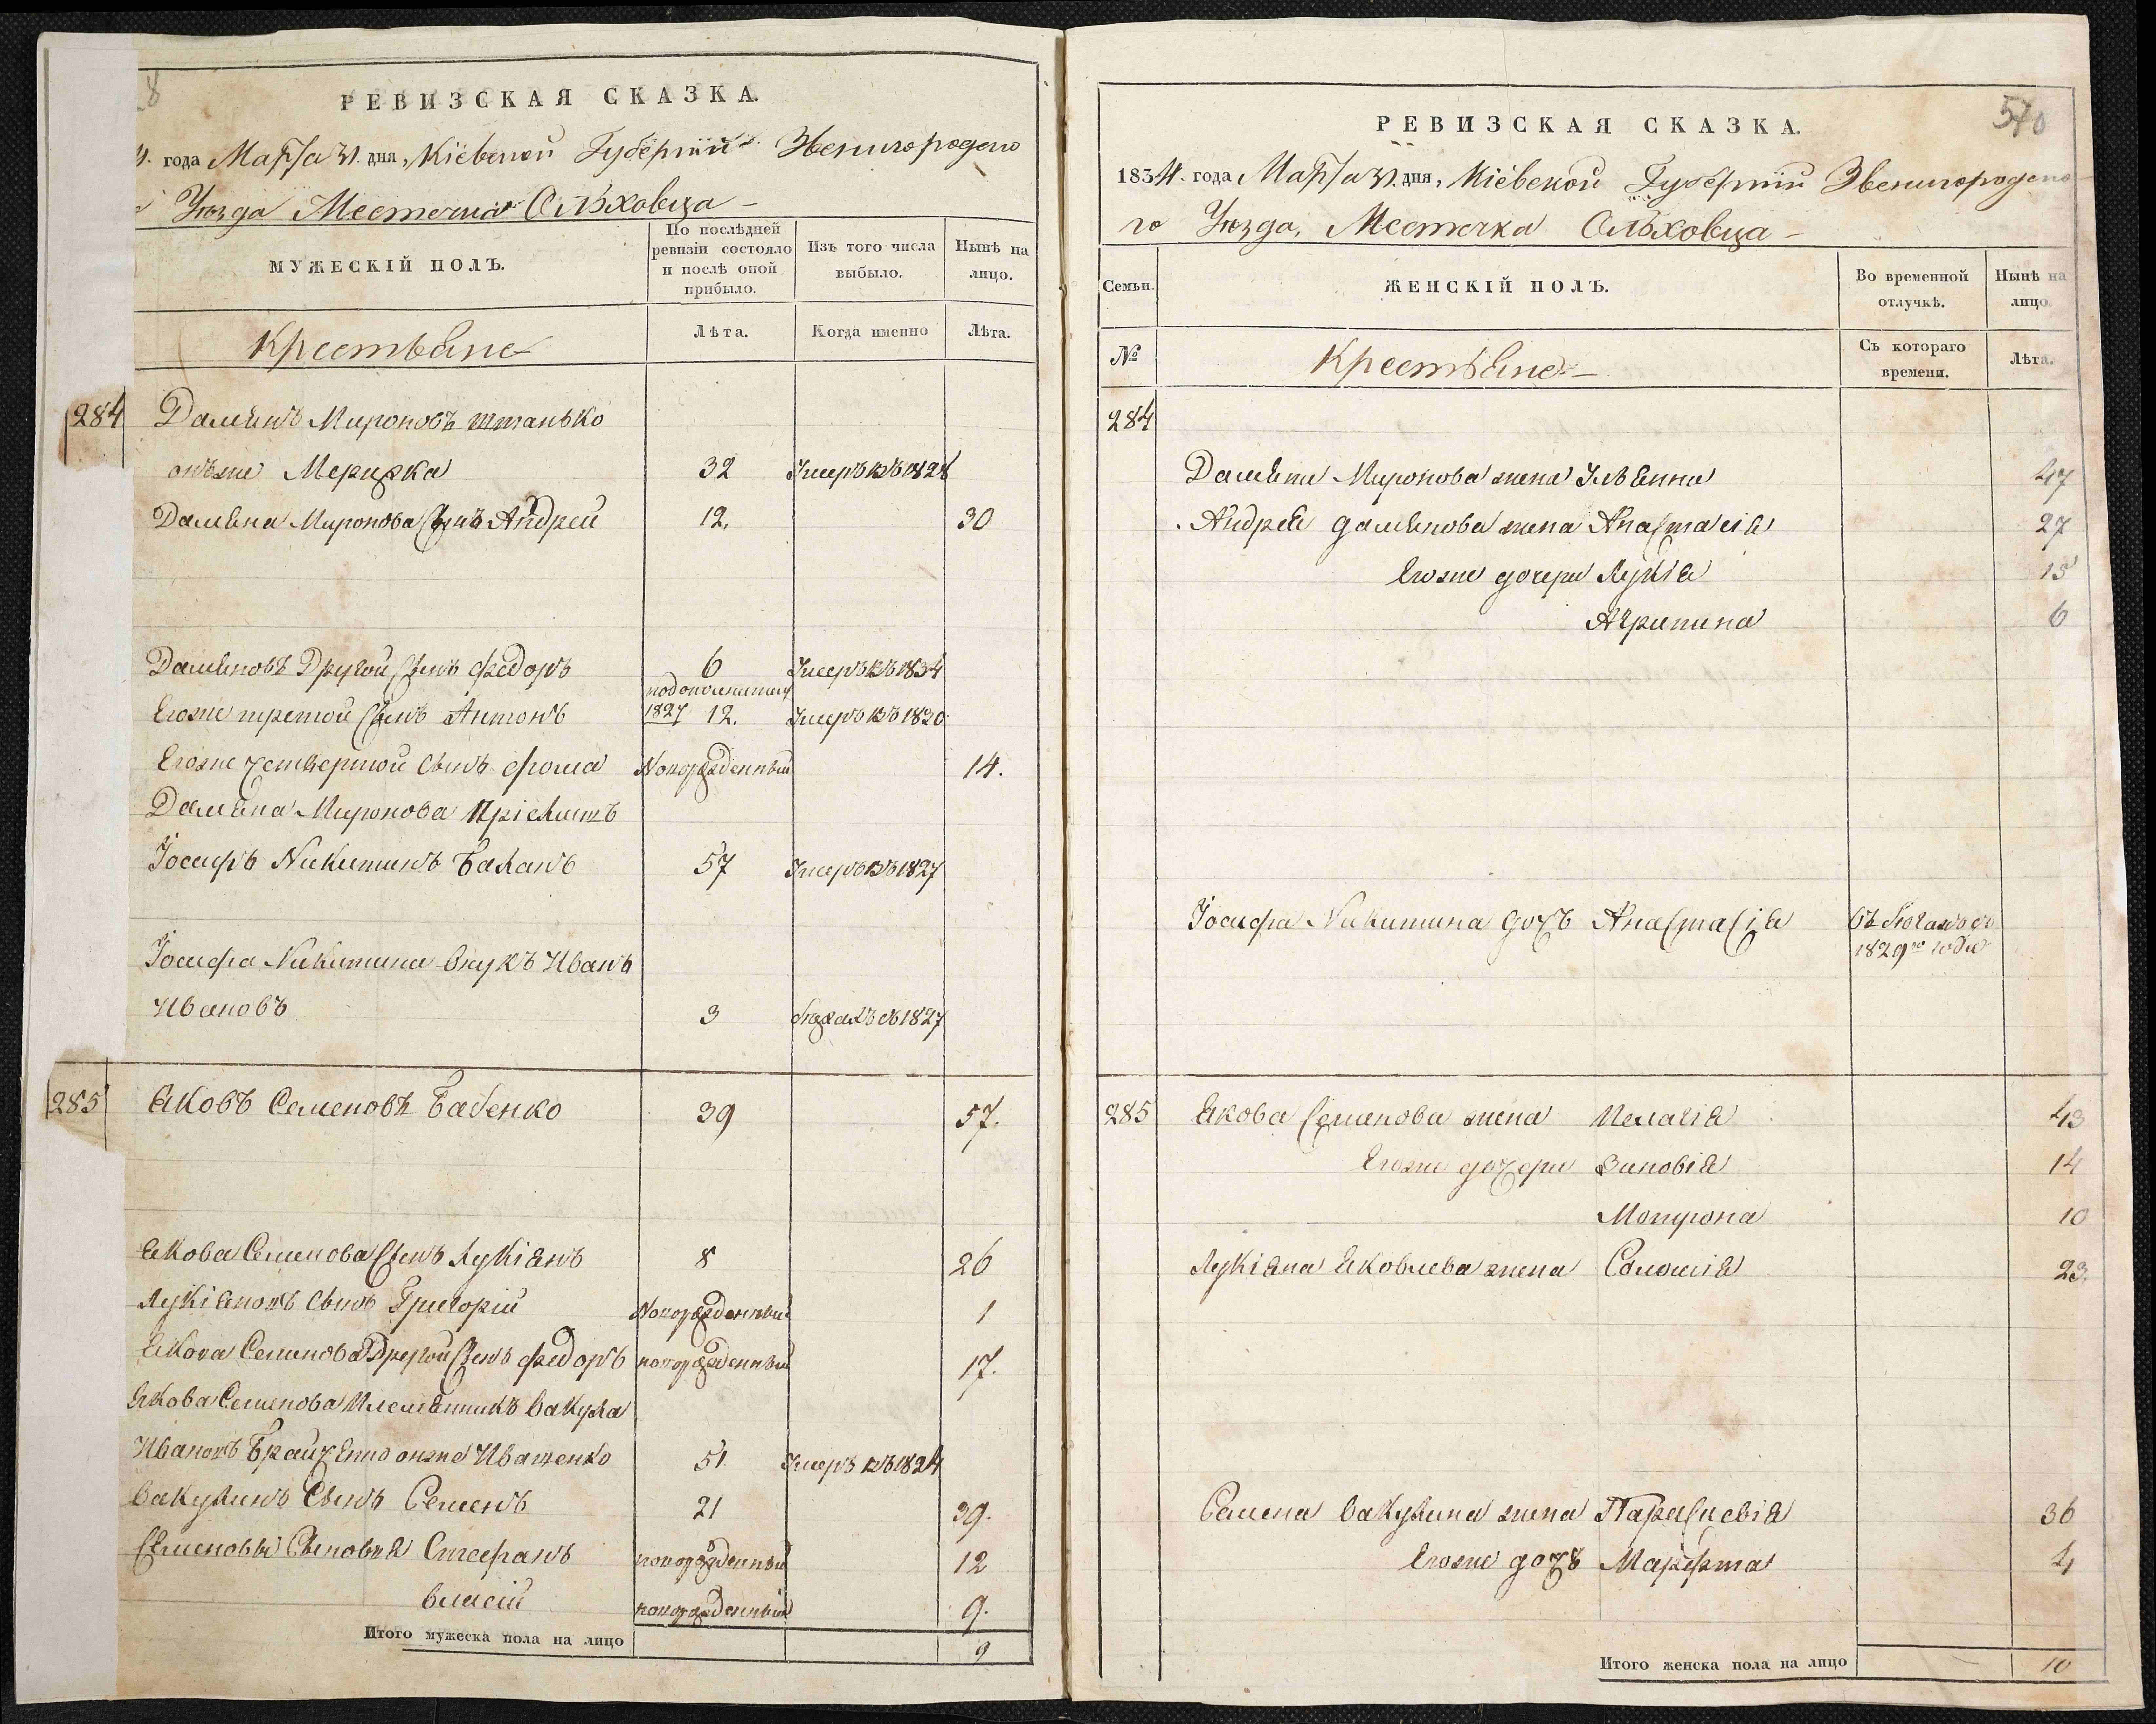 РЕВИЗСКАЯ СКАЗКА.
4. года Марта 31. дня, Кіевской Губерніи Звенигородско
Уѣзда Местечка Ольховца
МУЖЕСКІЙ ПОЛЪ.
По послѣдней ревизіи состояло и послѣ оной прибыло.
Изъ того числа выбыло.
Нынѣ на лицо.
Крестьяне
Лѣта.
Когда именно
Лѣта.
284 Дамянъ Мироновъ Штанько
онъже 32 Умеръ въ 1828
Дамяна Миронова Сынъ Андрей 12. 30
Дамяновъ Другой Сынъ Федоръ 6 Умеръ въ 1834
Егоже третой Сынъ Антонъ 1827 12. Умеръ въ 1830
Егоже четвертой Сынъ Фома Новорожденный 14.
Дамяна Миронова
Іосифъ Никитинъ Баланъ 57 Умеръ въ 1827
Іосифа Никитина внукъ Иванъ
Ивановъ 3 бежалъ въ 1827
285 Яковъ Семеновъ Бабенко 39 57.
Якова Семенова Сынъ Лукіянъ 8 26
Лукіяновъ Сынъ Григорій Новорожденный 1
Якова Семенова Другой Сынъ Федоръ новорожденный 17.
Якова Семенова Племянникъ Вакула
Ивановъ онже Иващенко 51 Умеръ въ 1824
Вакулинъ Сынъ Семенъ 21 39.
Семеновы Сыновья Стефанъ новорожденный 12
Власій новорожденный 9.
Итого мужеска пола на лицо 9
570
РЕВИЗСКАЯ СКАЗКА.
1834. года Марта 31. дня, Кіевской Губерніи Звенигородско
го Уѣзда, Местечка Ольховца
Семьи.
ЖЕНСКІЙ ПОЛЪ.
Во временной отлучкѣ.
Нынѣ на лицо.
№
Крестьяне
Съ котораго времени.
Лѣта.
284
Дамяна Миронова жена Ульянна 47
Андрея Дамянова жена Анастасія 27
Егоже дочери Лукія 15
Агрипина 6
Іосифа Никитина дочь Анастасія 1829го года
285 Якова Семенова жена Пелагія 43
Егоже дочери Зиновія 14
Мотрона 10
Лукіяна Яковлева жена Соломія 23.
Семена Вакулина жена Параскевія 36
Егоже дочь Марфта 4
Итого женска пола на лицо 10